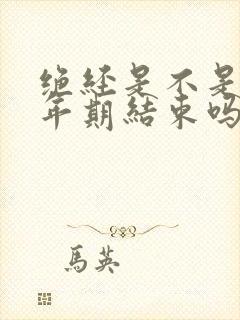 绝经是不是
年期結束吗
馬英